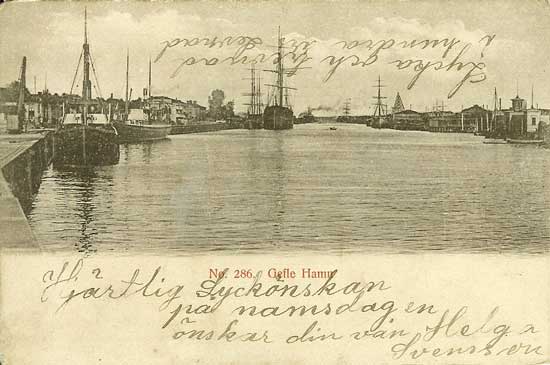 Lycka och trevnad
i hundra års levnad
No. 286. Gefle Hamn
Hjärtlig Lyckönskan
på namsdagen
önskar din vän Helga
Svensson